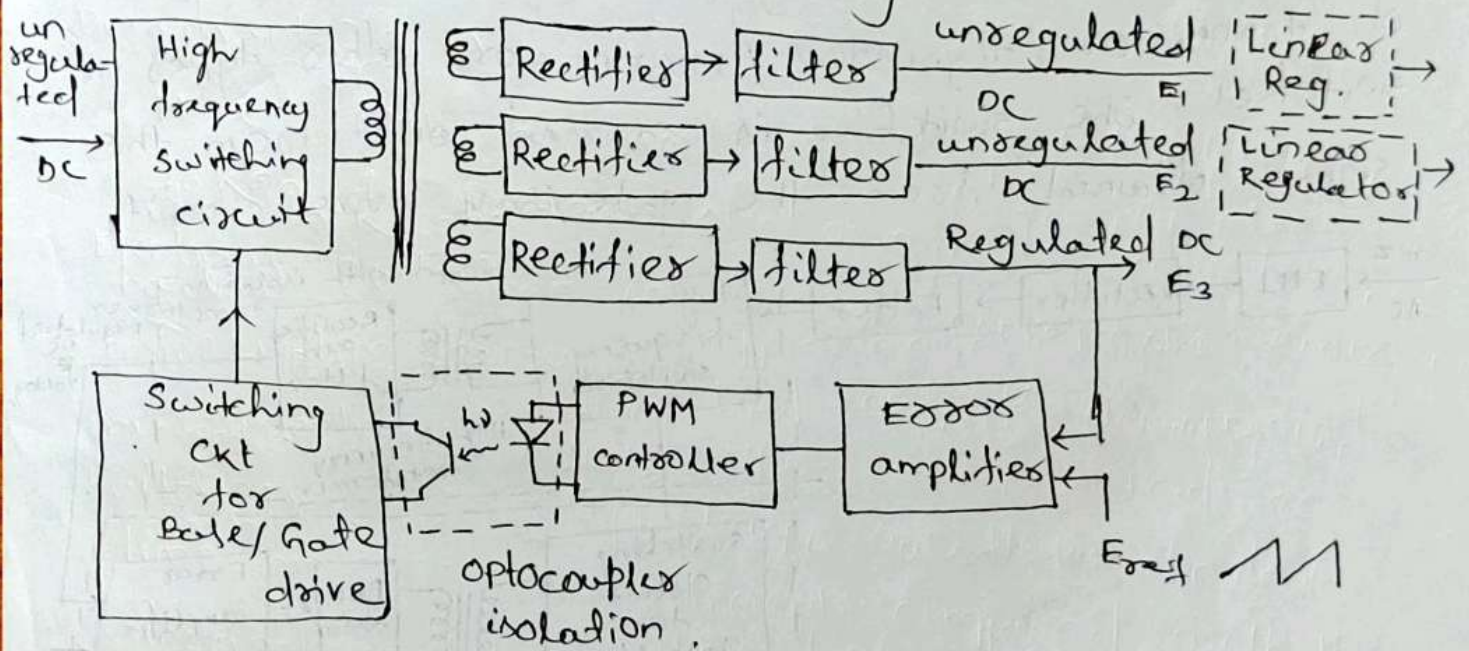 un
regula-
ted
DC
High
frequency
switching
circuit
Rectifier
filter
unregulated
DC
E1
Linear
Reg.
Rectifier
filter
unregulated
DC
E2
Linear
Regulator
Rectifier
filter
Regulated DC
E3
Switching
Ckt
for
Base/Gate
drive
hν
optocoupler
isolation.
PWM
controller
Error
amplifier
Eref